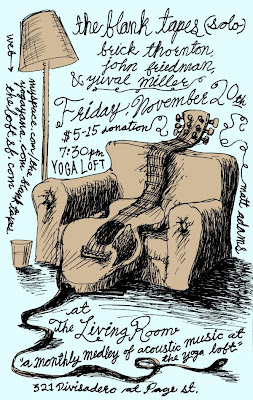 the blank tapes (solo)
brick thornton
john friedman
& yuval miller
Friday, November 20th
$5-15 donation
7:30pm
YOGA LOFT
web →
myspace.com/theblanktapes
yogayana.com
theloftsf.com
matt adams
at
The Living Room
"a monthly medley of acoustic music at
the yoga loft"
321 Divisadero at Page st.